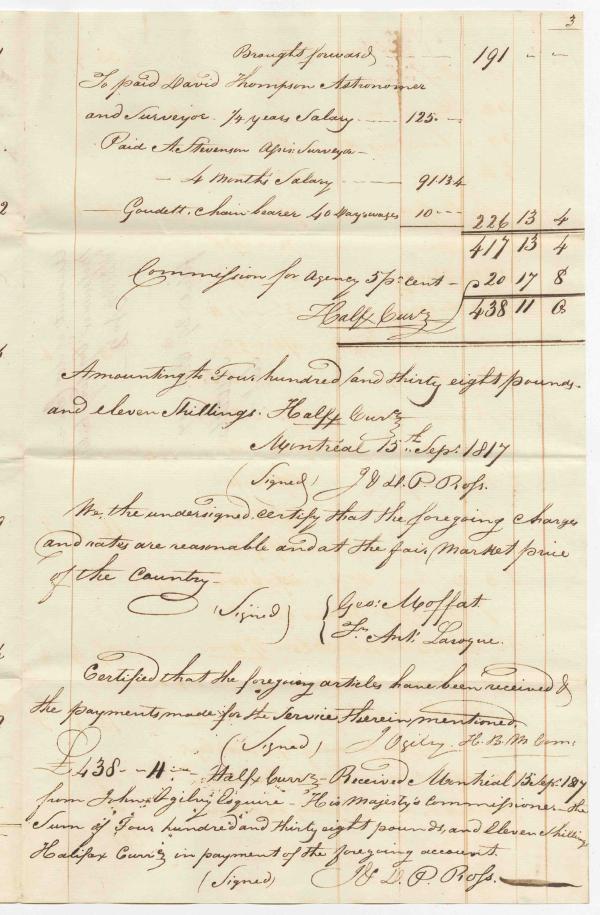 3
Brought forward 191 - -
To paid David Thompson Astronomer
and Surveyor. 1/4 years Salary 125 -
Paid A. Stevenson Assis: Surveyor -
- 4 Months Salary 91.13.4
- Goudett. Chain bearer 40 Days wages 10 - - 226 13 4
417 13 4
Commission for Agency 5 pr cent - 20 17 8
Halfx Curcy 438 11 0
Amounting to Four hundred and thirty eight pounds
and eleven Shillings. Halfx Curcy
Montréal 15th Sepr. 1817
(Signed) J & D. P. Ross.
We, the undersigned certify that the foregoing charges
and rates are reasonable and at the fair Market price
of the Country -
(Signed) Geo: Moffat.
Frs Ante Laroque.
Certified that the foregoing articles have been received &
the payments made for the Service therein mentioned,
(Signed) J Ogilvy. H. B. M Com:
£438 - 11 : - Halfx Curcy - Received Montréal 15 Sepr. 1817
from John Ogilvy Esquire - His Majesty's Commissioner - the
Sum of Four hundred and thirty eight pounds, and Eleven Shilling
Halifax Curcy in payment of the foregoing account.
(Signed) J & D. P. Ross.